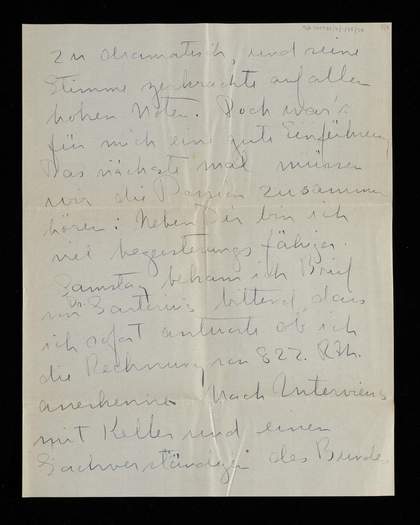 zu dramatisch, und seine
Stimme zerkrachte auf allen
hohen Noten. Doch war's
für mich eine gute Einführung
Das nächste mal müssen
wir die Passion zusammen
hören: Neben Dir bin ich
viel begeisterungs fähiger.
Samstag bekam ich Brief
von bittend, dass
ich sofort antworte ob ich
die Rechnung von 822. RM.
anerkenne. Nach Interviews
mit Keller und einem
Sachverständigen des Bundes